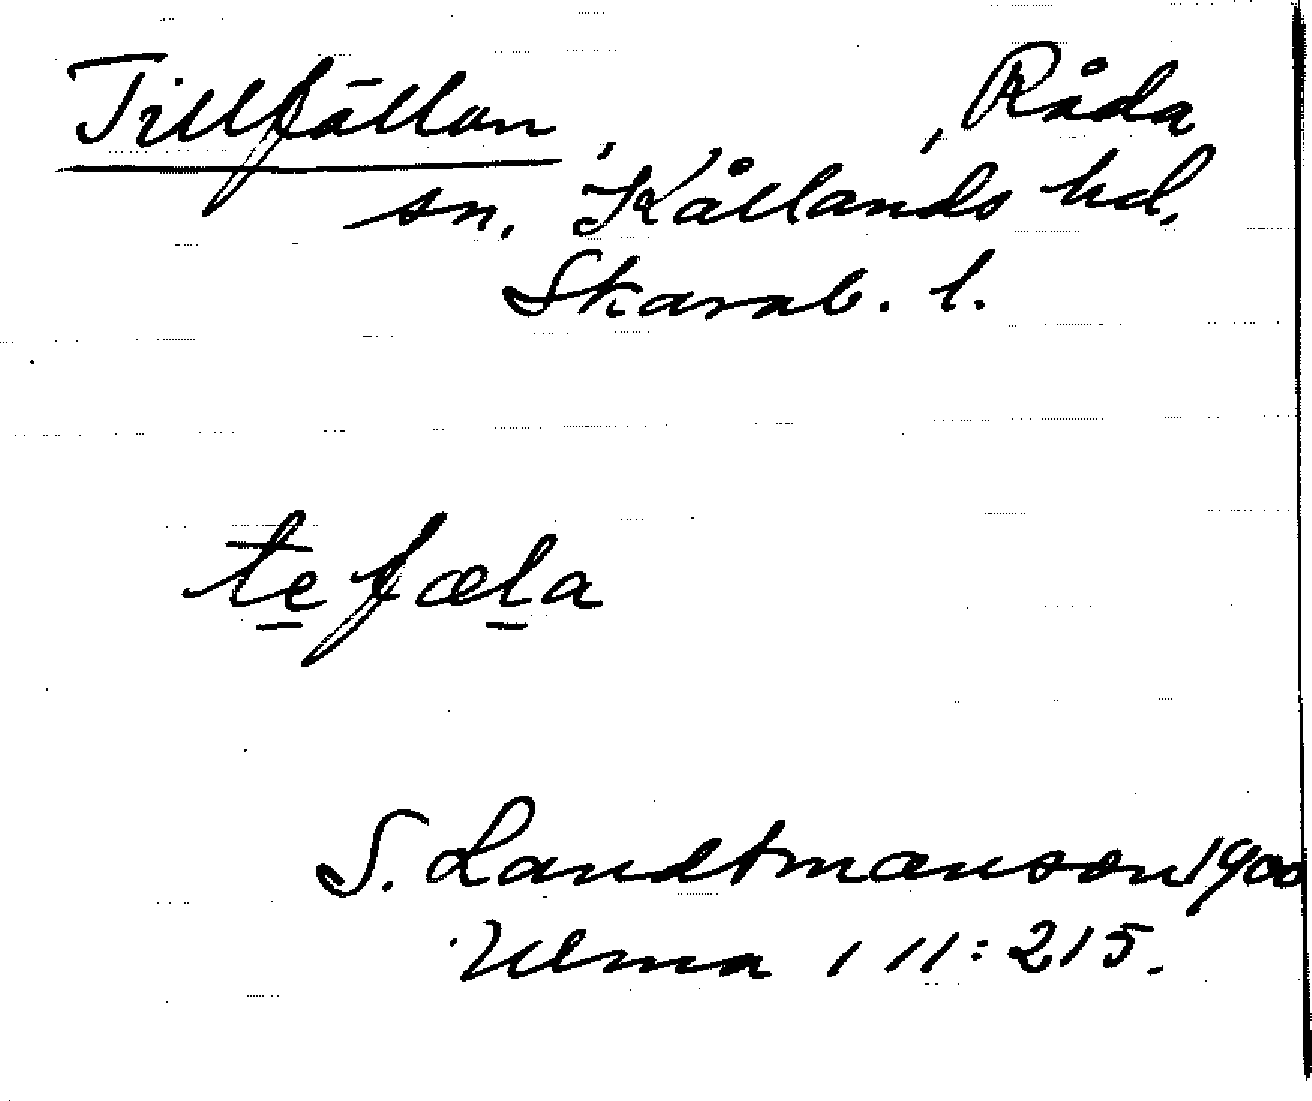 Tillfällan, , Råda
sn. Kållands hd.
Skarab. l.
tefæla
S. Landtmanson 1900
Ulma 111:215.